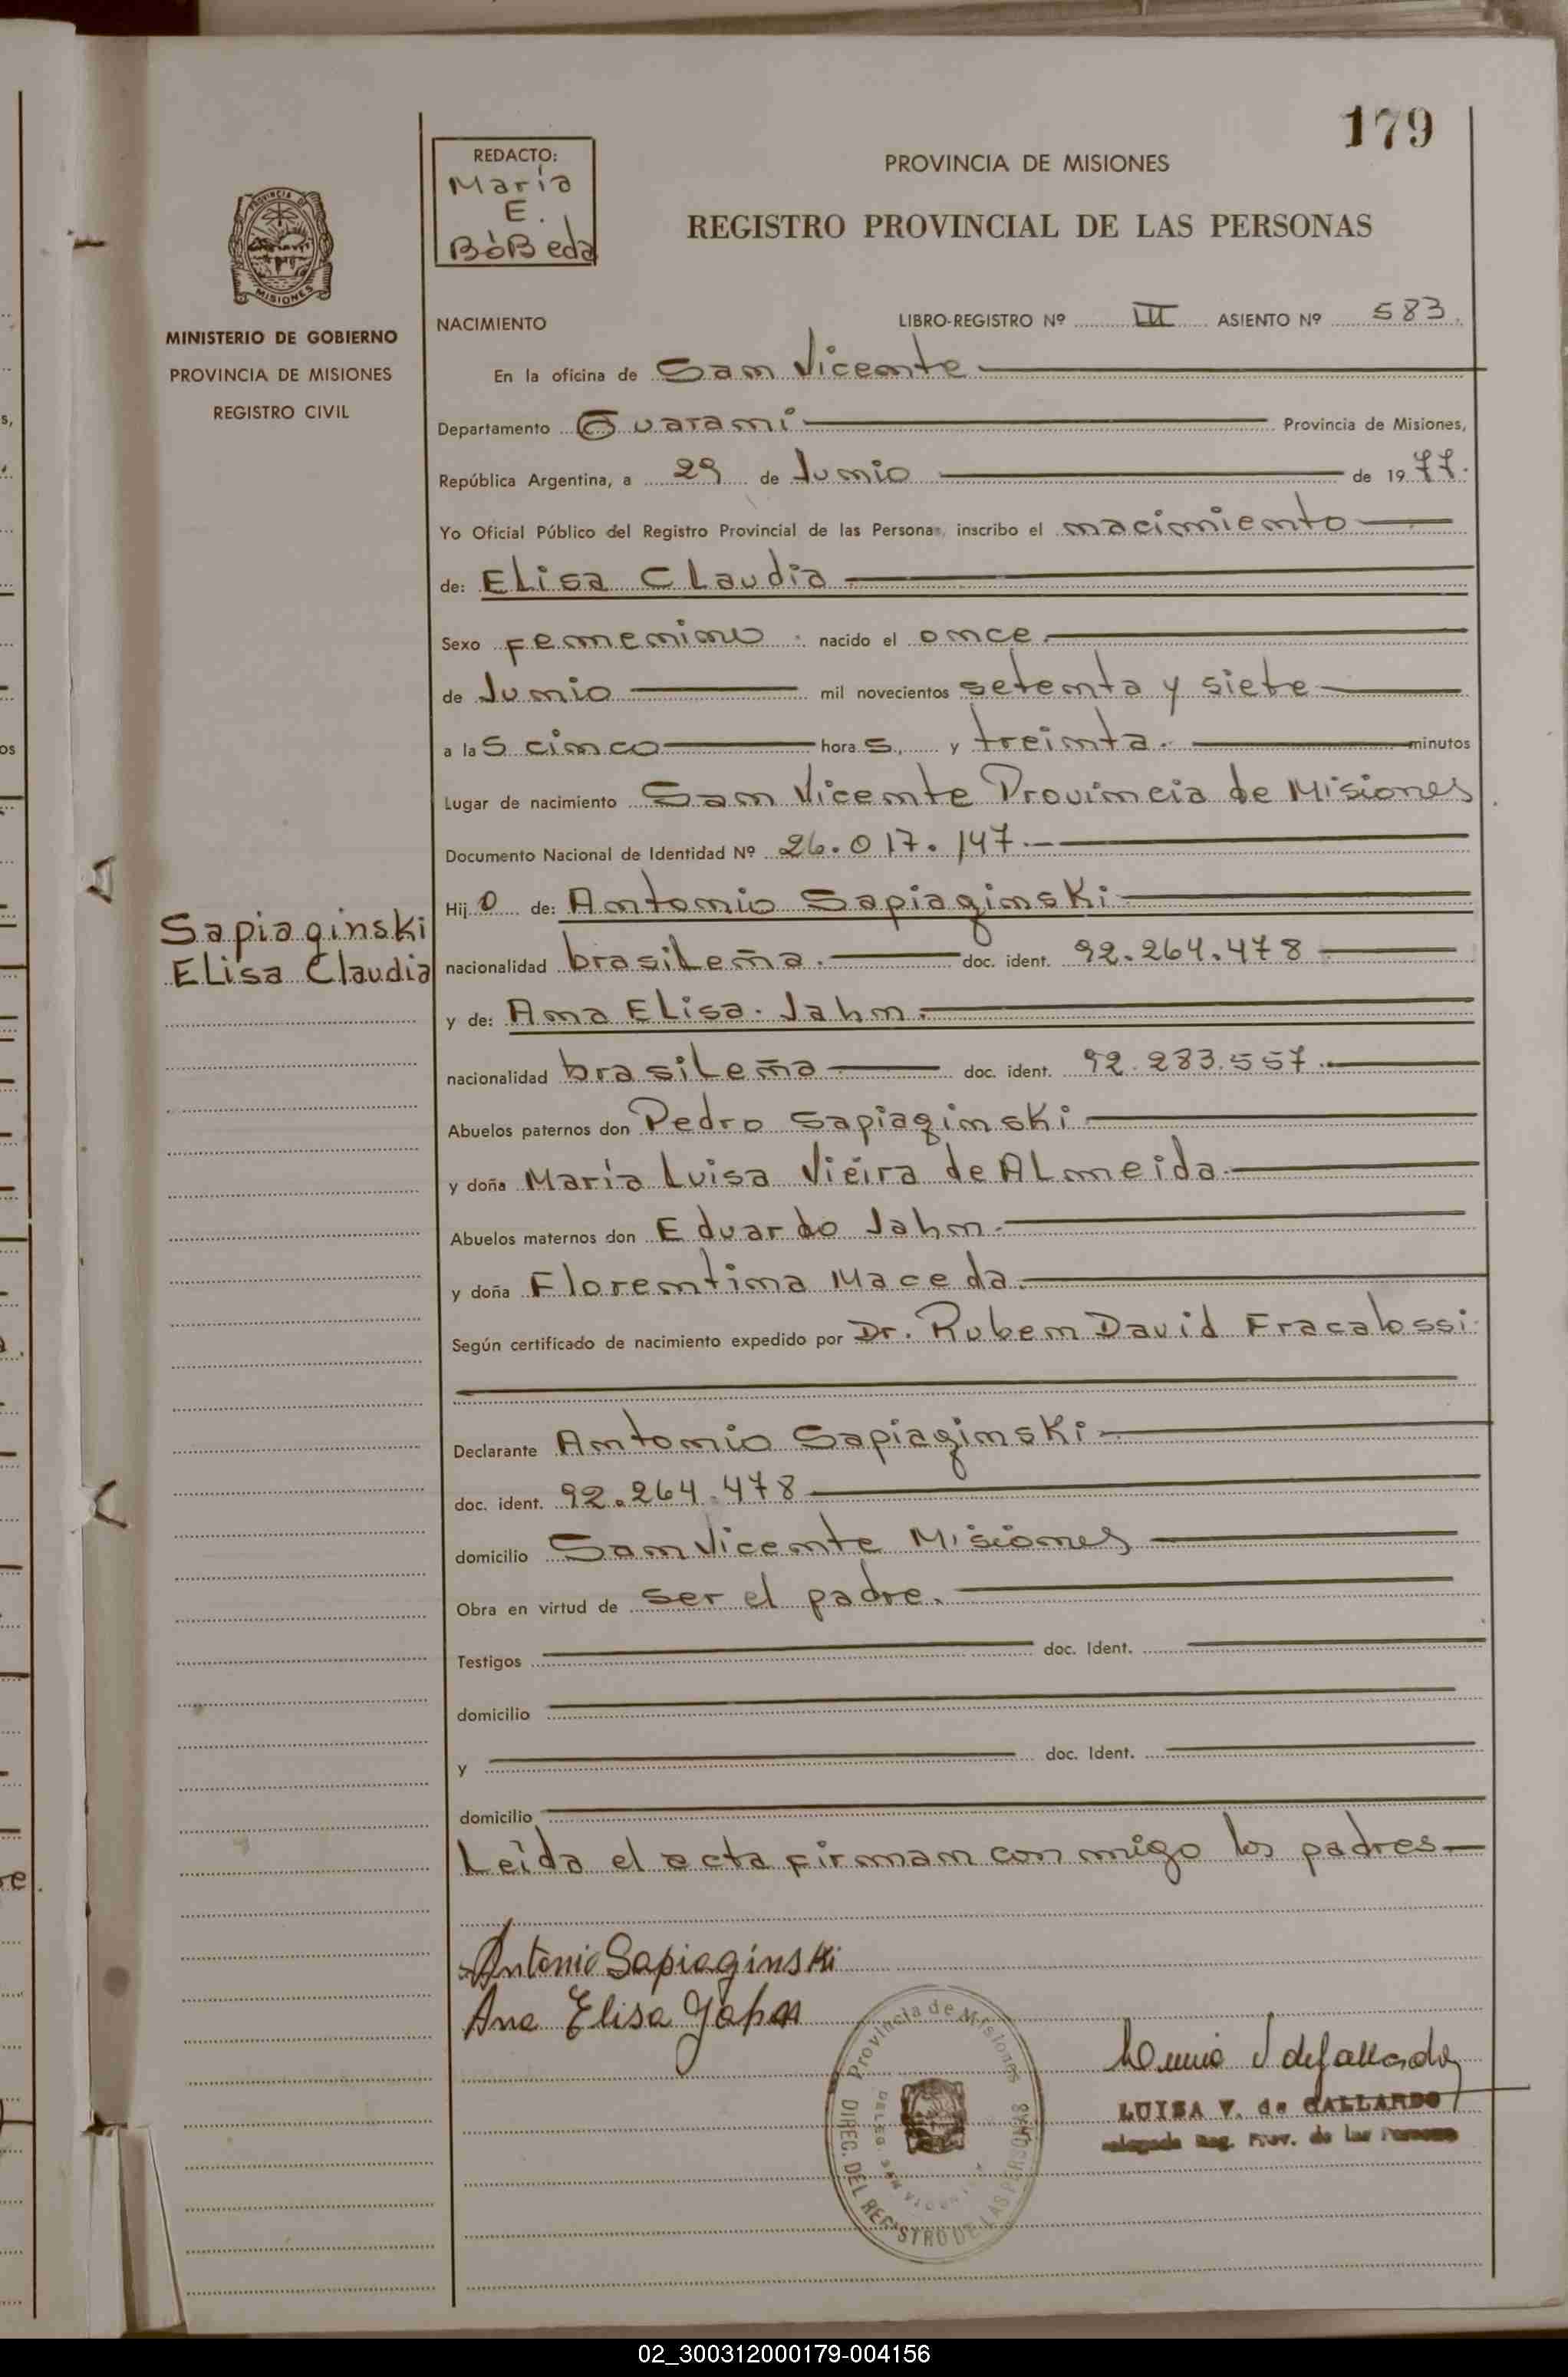 179
REDACTO:
María
E.
BòBeda
PROVINCIA DE MISIONES
REGISTRO PROVINCIAL DE LAS PERSONAS
PROVINCIA DE
MISIONES
MINISTERIO DE GOBIERNO
PROVINCIA DE MISIONES
REGISTRO CIVIL
NACIMIENTO LIBRO-REGISTRO Nº III ASIENTO Nº 583.
En la oficina de San Vicente
Departamento Guaraní Provincia de Misiones,
República Argentina, a 29 de Junio de 1977.
Yo Oficial Público del Registro Provincial de las Personas, inscribo el nacimiento
de: Elisa Claudia
Sexo femenino. nacido el once.
de Junio mil novecientos setenta y siete
a las cinco horas, y treinta. minutos
Lugar de nacimiento San Vicente Provincia de Misiones
Documento Nacional de Identidad Nº 26.017.147.
Hijo de: Antonio Sapiaginski
Sapiaginski
Elisa Claudia
nacionalidad brasileña. doc. ident. 92.264.478
y de: Ana Elisa. Jahn.
nacionalidad brasileña doc. ident. 92.283.557.
Abuelos paternos don Pedro Sapiaginski
y doña María Luisa Vieira de Almeida.
Abuelos maternos don Eduardo Jahn.
y doña Florentina Maceda.
Según certificado de nacimiento expedido por Dr. Ruben David Fracalossi
Declarante Antonio Sapiaginski
doc. ident. 92.264.478
domicilio San Vicente Misiones
Obra en virtud de ser el padre.
Testigos doc. Ident.
domicilio
y doc. Ident.
domicilio
Leída el acta firman conmigo los padres
Antonio Sapiaginski
Ana Elisa Jahn
Provincia de Misiones
DIREC. DEL REGISTRO DE LAS PERSONAS
LUISA V. de GALLARDO
Delegada Reg. Prov. de las Personas
02_300312000179-004156